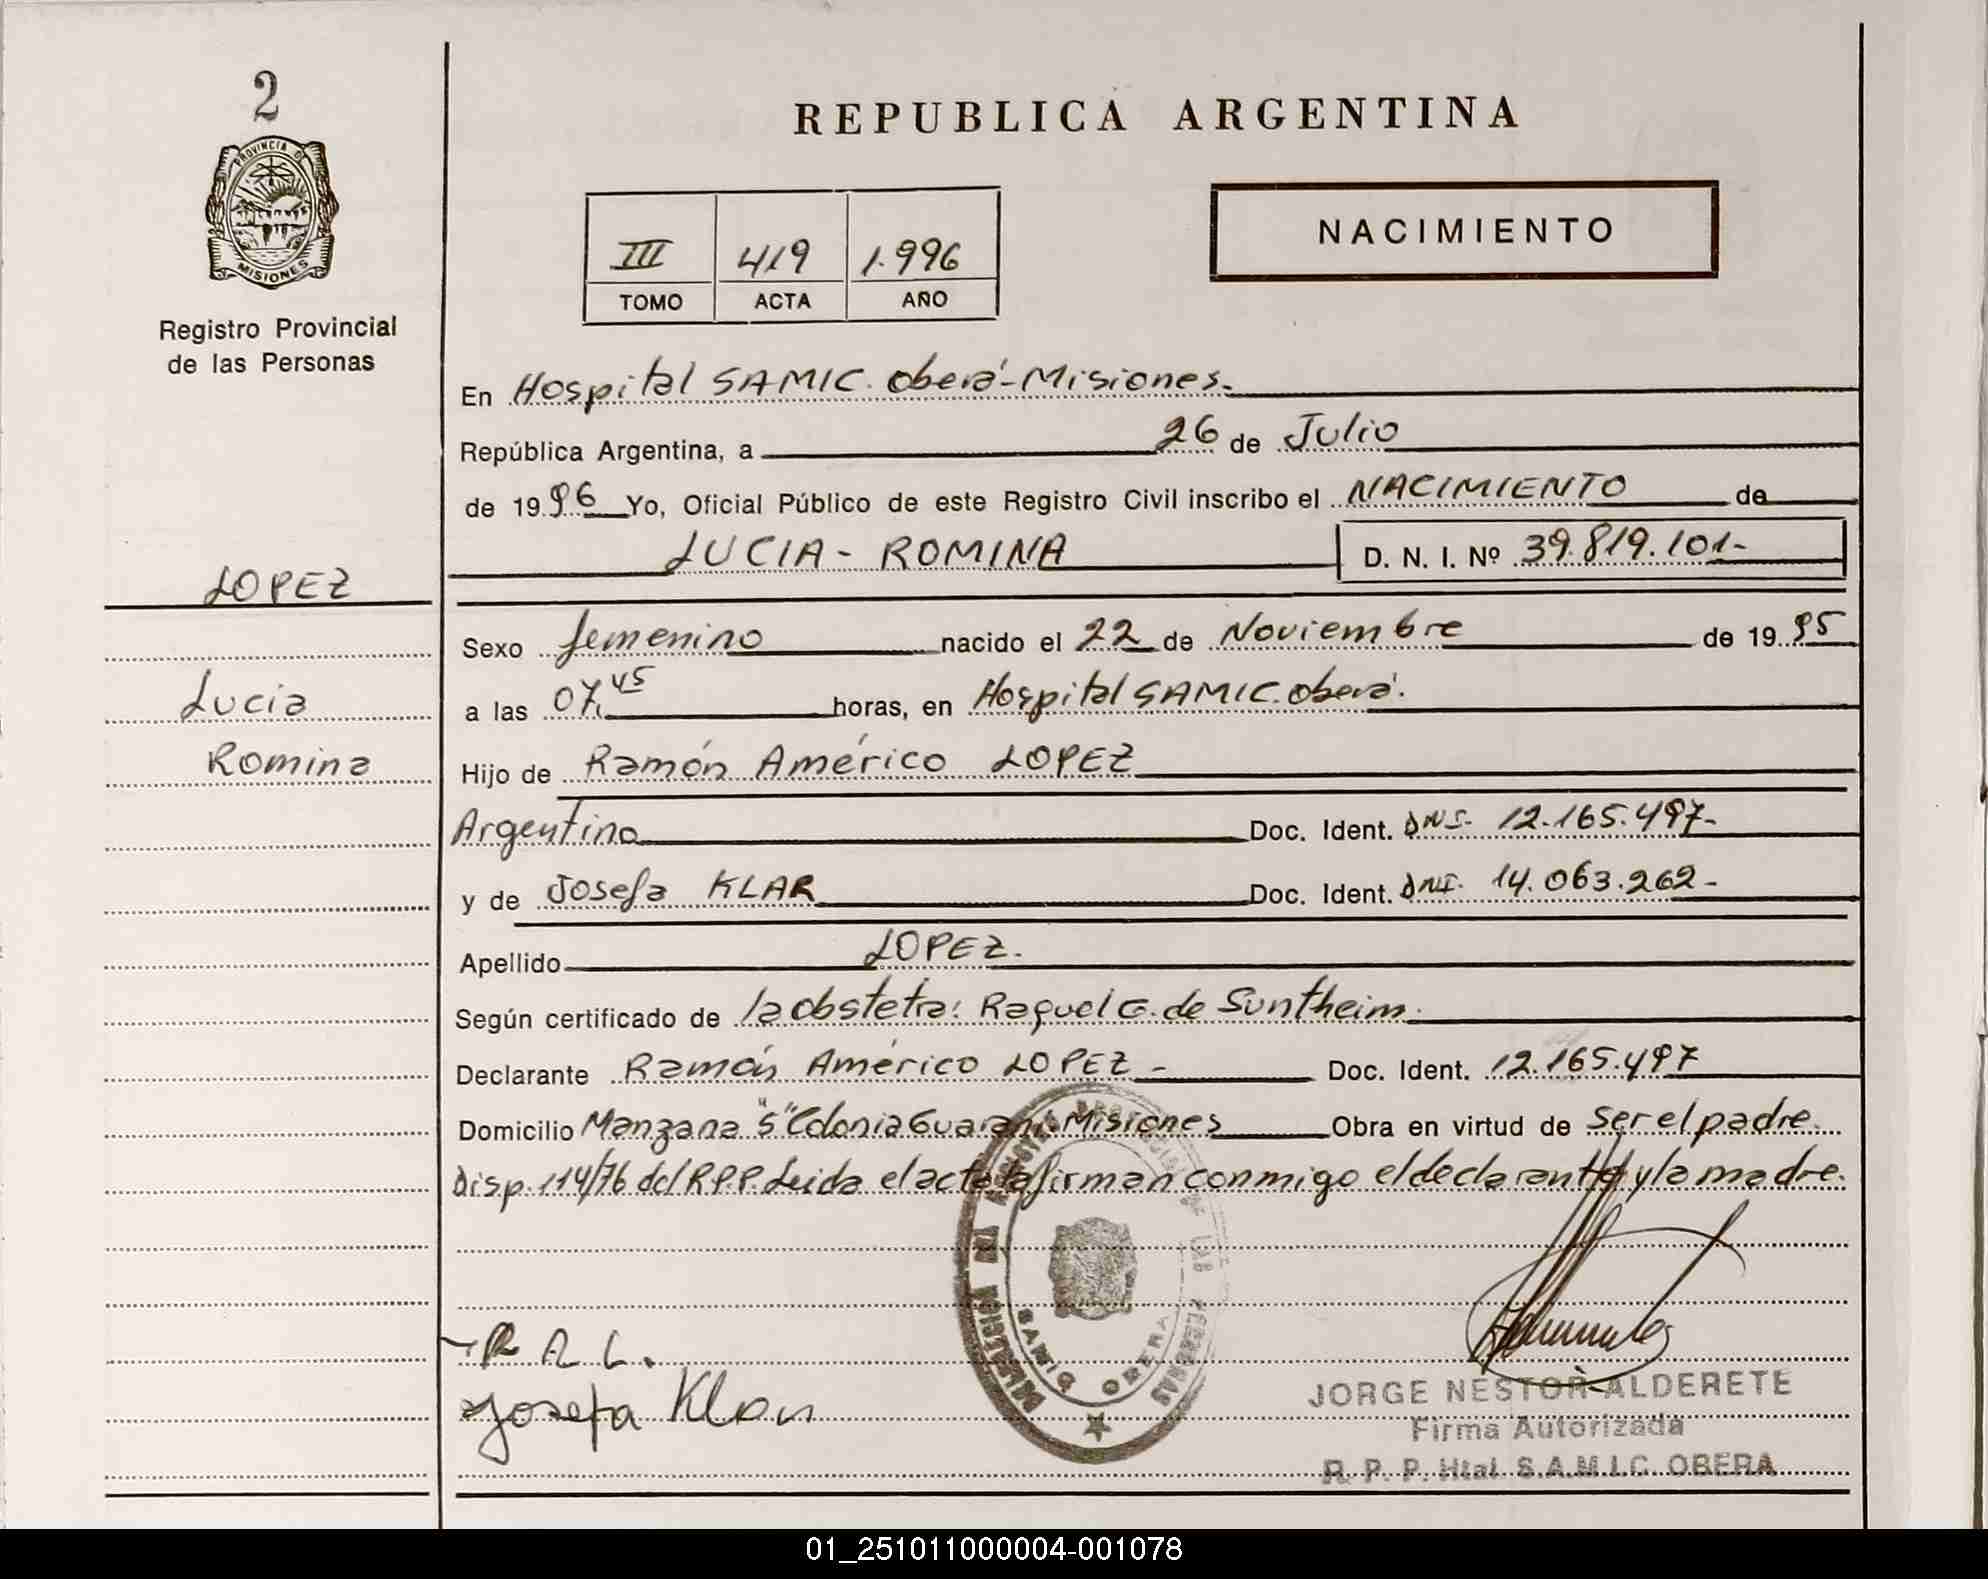 2
PROVINCIA DE
MISIONES
Registro Provincial
de las Personas
REPUBLICA ARGENTINA
III 419 1.996
TOMO ACTA AÑO
NACIMIENTO
En Hospital SAMIC. Oberá-Misiones.
República Argentina, a 26 de Julio
de 1996 Yo, Oficial Público de este Registro Civil inscribo el NACIMIENTO de
LUCIA - ROMINA D. N. I. Nº 39.819.101-
LOPEZ
Lucia
Romina
Sexo femenino nacido el 22 de Noviembre de 1995
a las 07,45 horas, en Hospital SAMIC. Oberá.
Hijo de Ramón Américo LOPEZ
Argentino Doc. Ident. DNI. 12.165.497-
y de Josefa KLAR Doc. Ident. DNI. 14.063.262-
Apellido LOPEZ.
Según certificado de la obstetra: Raquel G. de Suntheim.
Declarante Ramón Américo LOPEZ - Doc. Ident. 12.165.497
Domicilio Manzana "5" Colonia Guaraní-Misiones Obra en virtud de ser el padre.
Disp. 114/76 del R.P.P. Leida el acta la firman conmigo el declarante y la madre.
R A L.
Josefa Klar
SAMIC OBERA
JORGE NESTOR ALDERETE
Firma Autorizada
R. P. P. Htal. S.A.M.I.C. OBERA
01_251011000004-001078